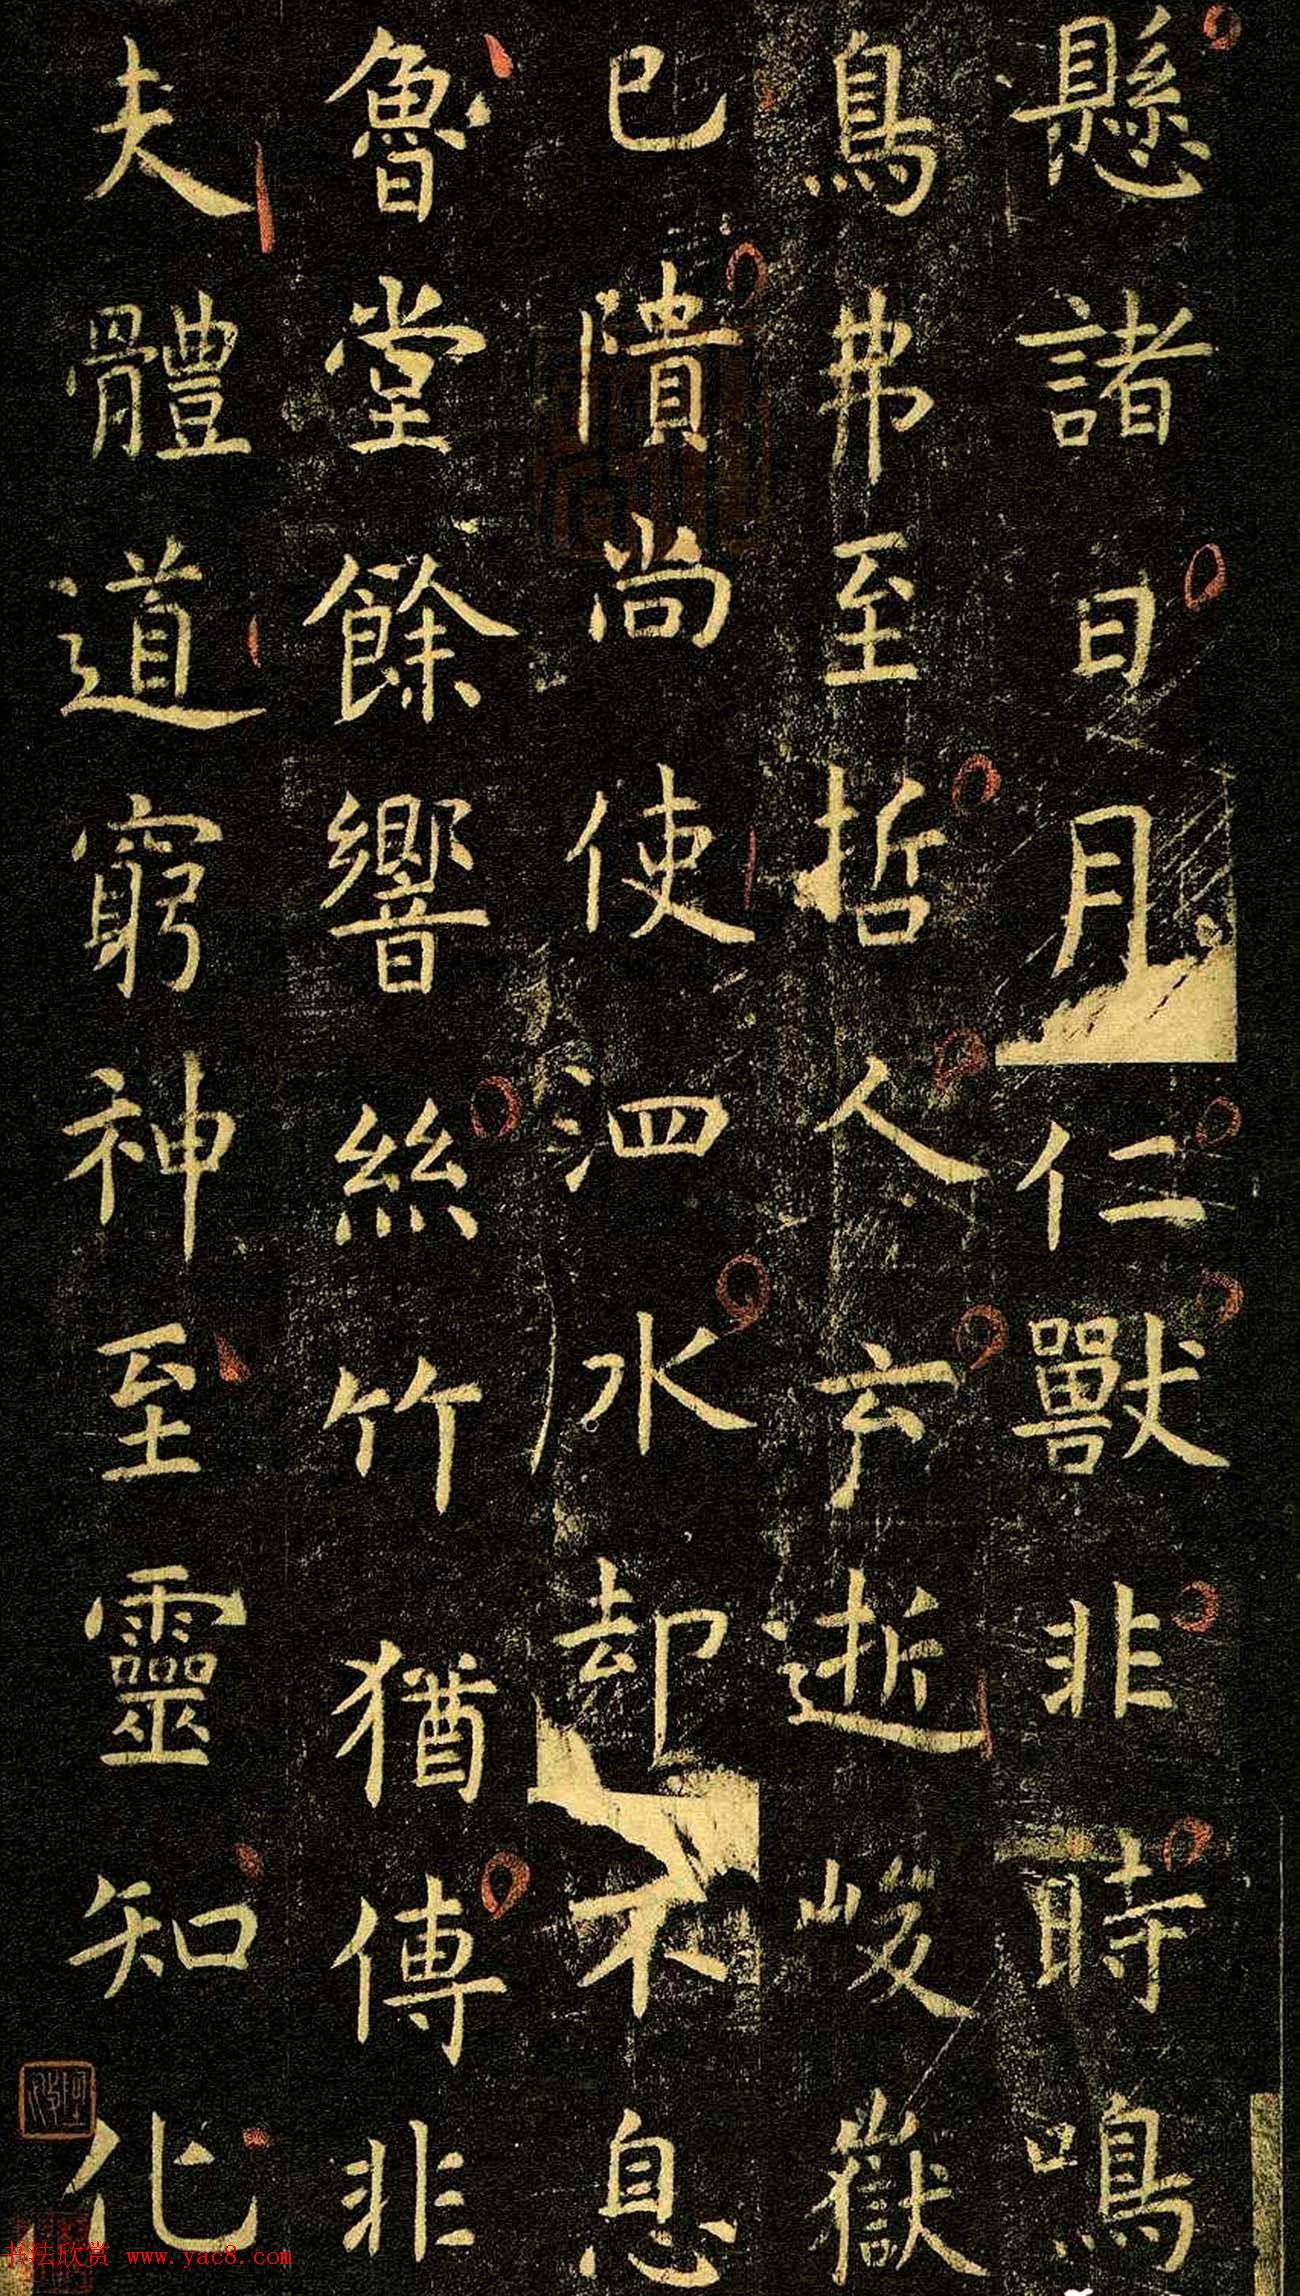 懸諸日月仁獸非時鳴
鳥弗至哲人云逝峻嶽
已隤尚使泗水却不息
魯堂餘響絲竹猶傳非
夫體道窮神至靈知化
书法欣赏 www.yac8.com